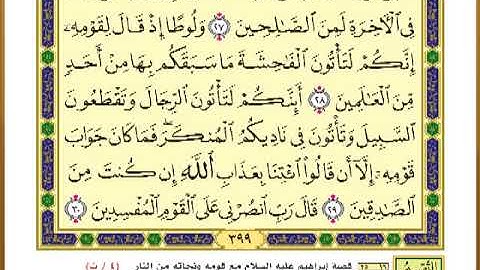 فِى ٱلْأَخِرَةِ لَمِنَ ٱلصَّٰلِحِينَ ٢٧ وَلُوطًا إِذْ قَالَ لِقَوْمِهِۦٓ
إِنَّكُمْ لَتَأْتُونَ ٱلْفَٰحِشَةَ مَا سَبَقَكُم بِهَا مِنْ أَحَدٍ
مِّنَ ٱلْعَٰلَمِينَ ٢٨ أَئِنَّكُمْ لَتَأْتُونَ ٱلرِّجَالَ وَتَقْطَعُونَ
ٱلسَّبِيلَ وَتَأْتُونَ فِى نَادِيكُمُ ٱلْمُنكَرَ ۖ فَمَا كَانَ جَوَابَ
قَوْمِهِۦٓ إِلَّآ أَن قَالُوا۟ ٱئْتِنَا بِعَذَابِ ٱللَّهِ إِن كُنتَ مِنَ
ٱلصَّٰدِقِينَ ٢٩ قَالَ رَبِّ ٱنصُرْنِى عَلَى ٱلْقَوْمِ ٱلْمُفْسِدِينَ ٣٠
٣٩٩
١٦ ٢٥ قصة إبراهيم عليه السلام مع قومه ونجاته من النار (٤ / ب)